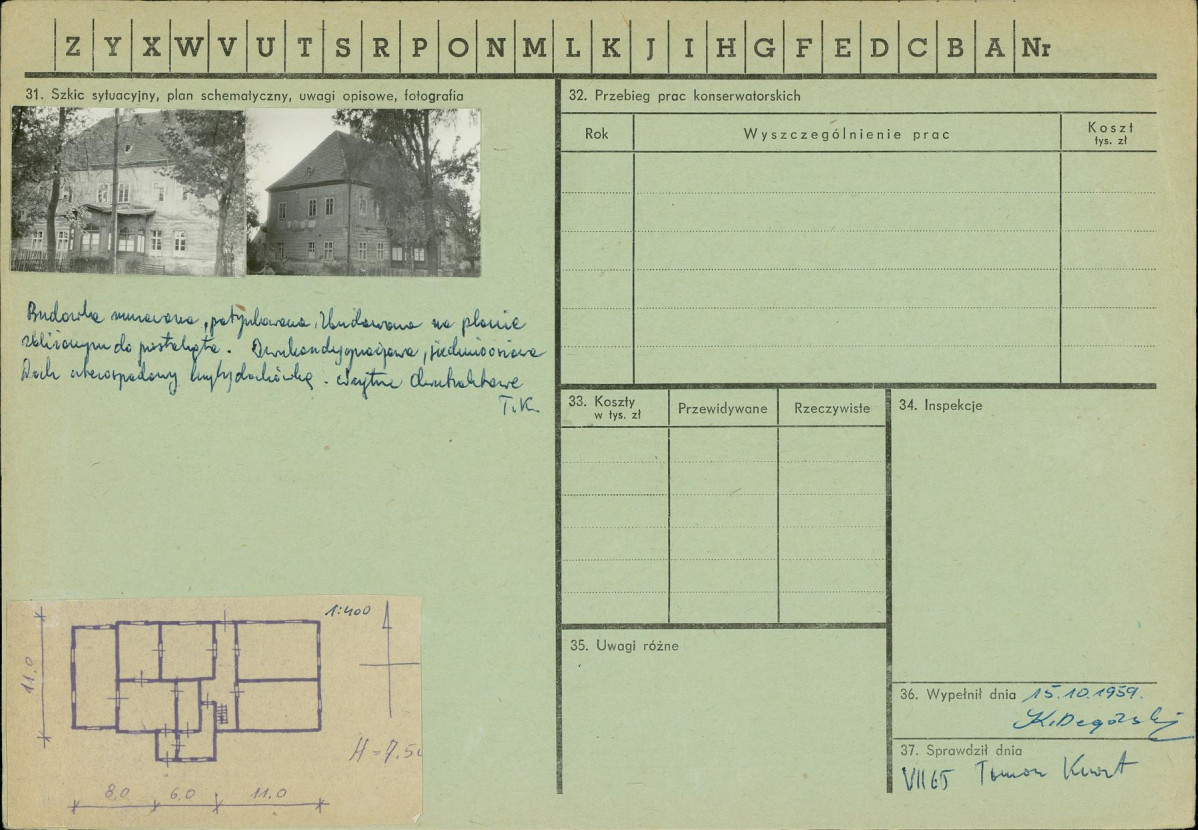 Z Y X W V U T S R P O N M L K J I H G F E D C B A Nr
31. Szkic sytuacyjny, plan schematyczny, uwagi opisowe, fotografia
Budowla murowana, potynkowana. Zbudowana na planie
zbliżonym do prostokąta. Dwukondygnacjowa, siedmioosiowa
Dach czterospadowy kryty dachówką. Wnętrze dwutraktowe
T.K.
1:400
11.0
H=7.50
8,0 6,0 11.0
32. Przebieg prac konserwatorskich
Rok Wyszczególnienie prac Koszt
tys. zł
33. Koszty
w tys. zł
Przewidywane Rzeczywiste
34. Inspekcje
35. Uwagi różne
36. Wypełnił dnia 15.10.1959.
K. Degórski
37. Sprawdził dnia
VII 65